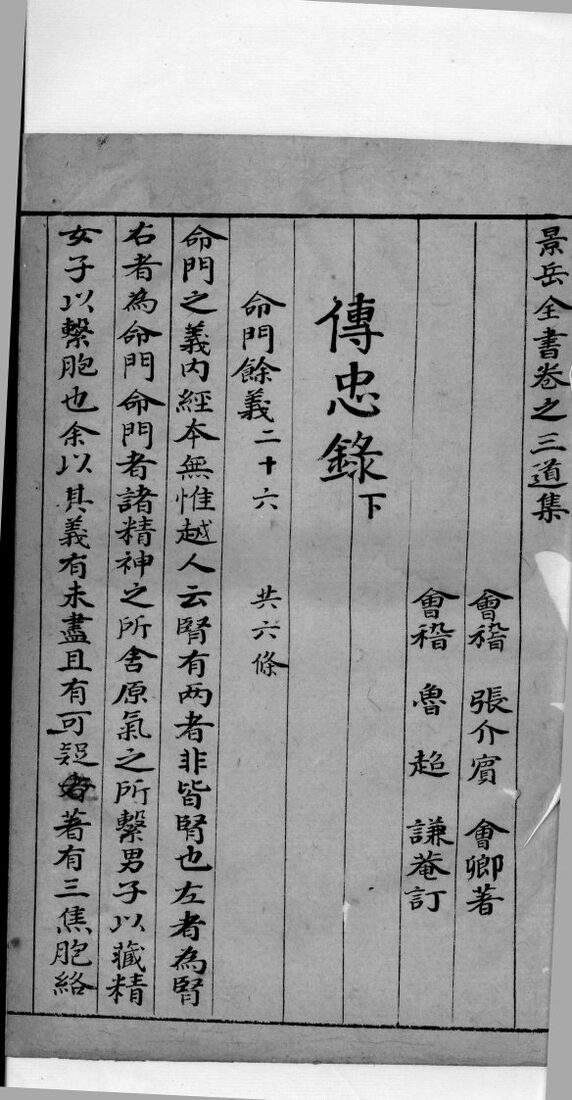 景岳全書卷之三道集
會稽 張介賓 會卿著
會稽 魯超 謙菴訂
傳忠錄下
命門餘義二十六 共六條
命門之義內經本無惟越人云腎有两者非皆腎也左者為腎
右者為命門命門者諸精神之所舍原氣之所繫男子以藏精
女子以繫胞也余以其義有未盡且有可疑著有三焦胞絡